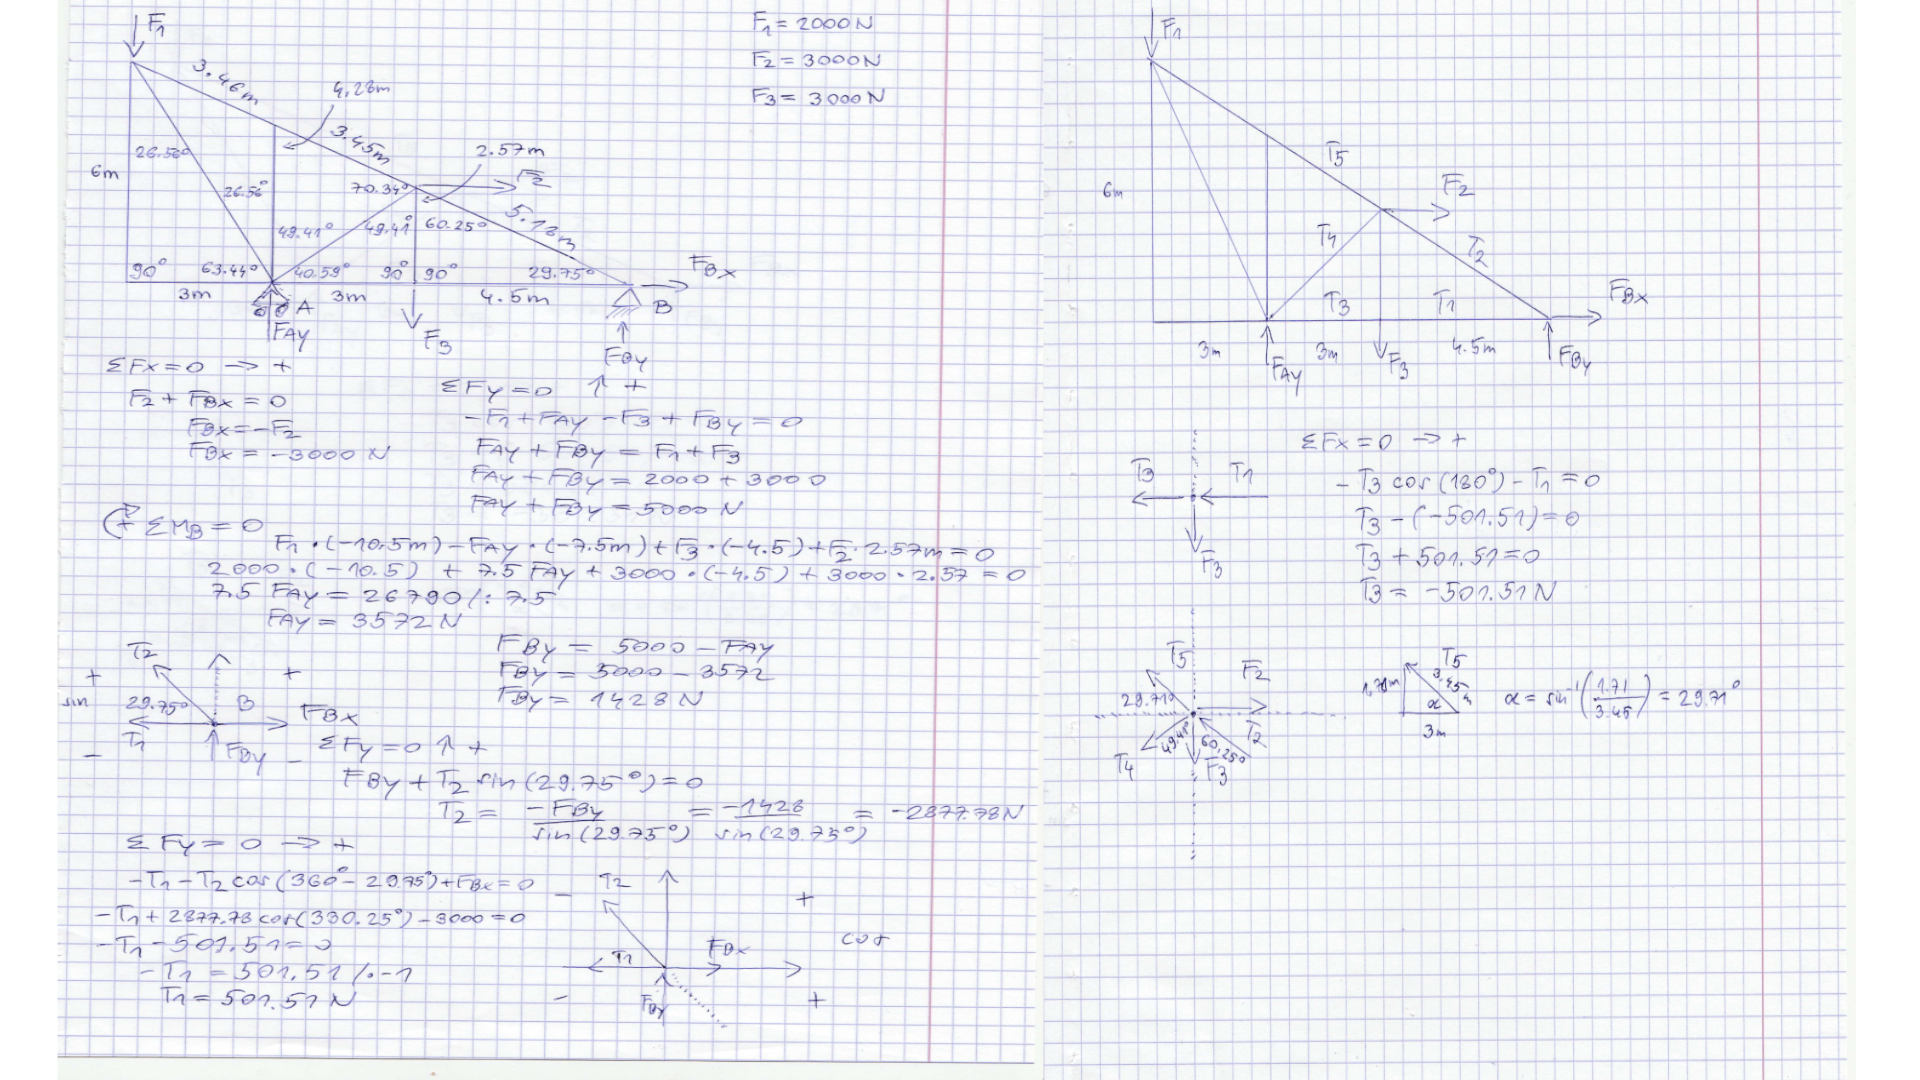 F1
F1 = 2000N
F2 = 3000N
F3 = 3000N
3.46m
4.28m
3.45m
2.57m
6m
26.56°
26.56°
70.34°
F2
5.18m
49.41°
49.41°
60.25°
90°
63.44°
40.59°
90°
90°
29.75°
FBx
3m
A
3m
4.5m
B
FAy
F3
FBy
ΣFx=0 → +
F2 + FBx = 0
FBx = -F2
FBx = -3000 N
ΣFy=0 ↑ +
-F1 + FAy - F3 + FBy = 0
FAy + FBy = F1 + F3
FAy + FBy = 2000 + 3000
FAy + FBy = 5000 N
+ ΣMB = 0
F1 · (-10.5m) - FAy · (-7.5m) + F3 · (-4.5) + F2 · 2.57m = 0
2000 · (-10.5) + 7.5 FAy + 3000 · (-4.5) + 3000 · 2.57 = 0
7.5 FAy = 26790 /: 7.5
FAy = 3572 N
FBy = 5000 - FAy
FBy = 5000 - 3572
FBy = 1428 N
T2
+
+
sin
29.75°
B
FBx
T1
FBy
-
-
ΣFy=0 ↑ +
FBy + T2 sin(29.75°) = 0
T2 = -FBy / sin(29.75°) = -1428 / sin(29.75°) = -2877.78N
ΣFy = 0 → +
-T1 - T2 cos(360° - 29.75°) + FBx = 0
-T1 + 2877.78 cos(330.25°) - 3000 = 0
-T1 - 501.51 = 0
-T1 = 501.51 /·-1
T1 = 501.51 N
-
T2
+
cos
T1
FBx
-
FBy
+
F1
6m
T5
F2
T4
T2
T3
T1
FBx
3m
FAy
3m
F3
4.5m
FBy
T3
T1
F3
ΣFx=0 → +
-T3 cos(180°) - T1 = 0
T3 - (-501.51) = 0
T3 + 501.51 = 0
T3 = -501.51 N
T5
F2
29.71°
T2
49.41°
60.25°
T4
F3
T5
3.45m
α
3m
α = sin⁻¹(1.71/3.45) = 29.71°